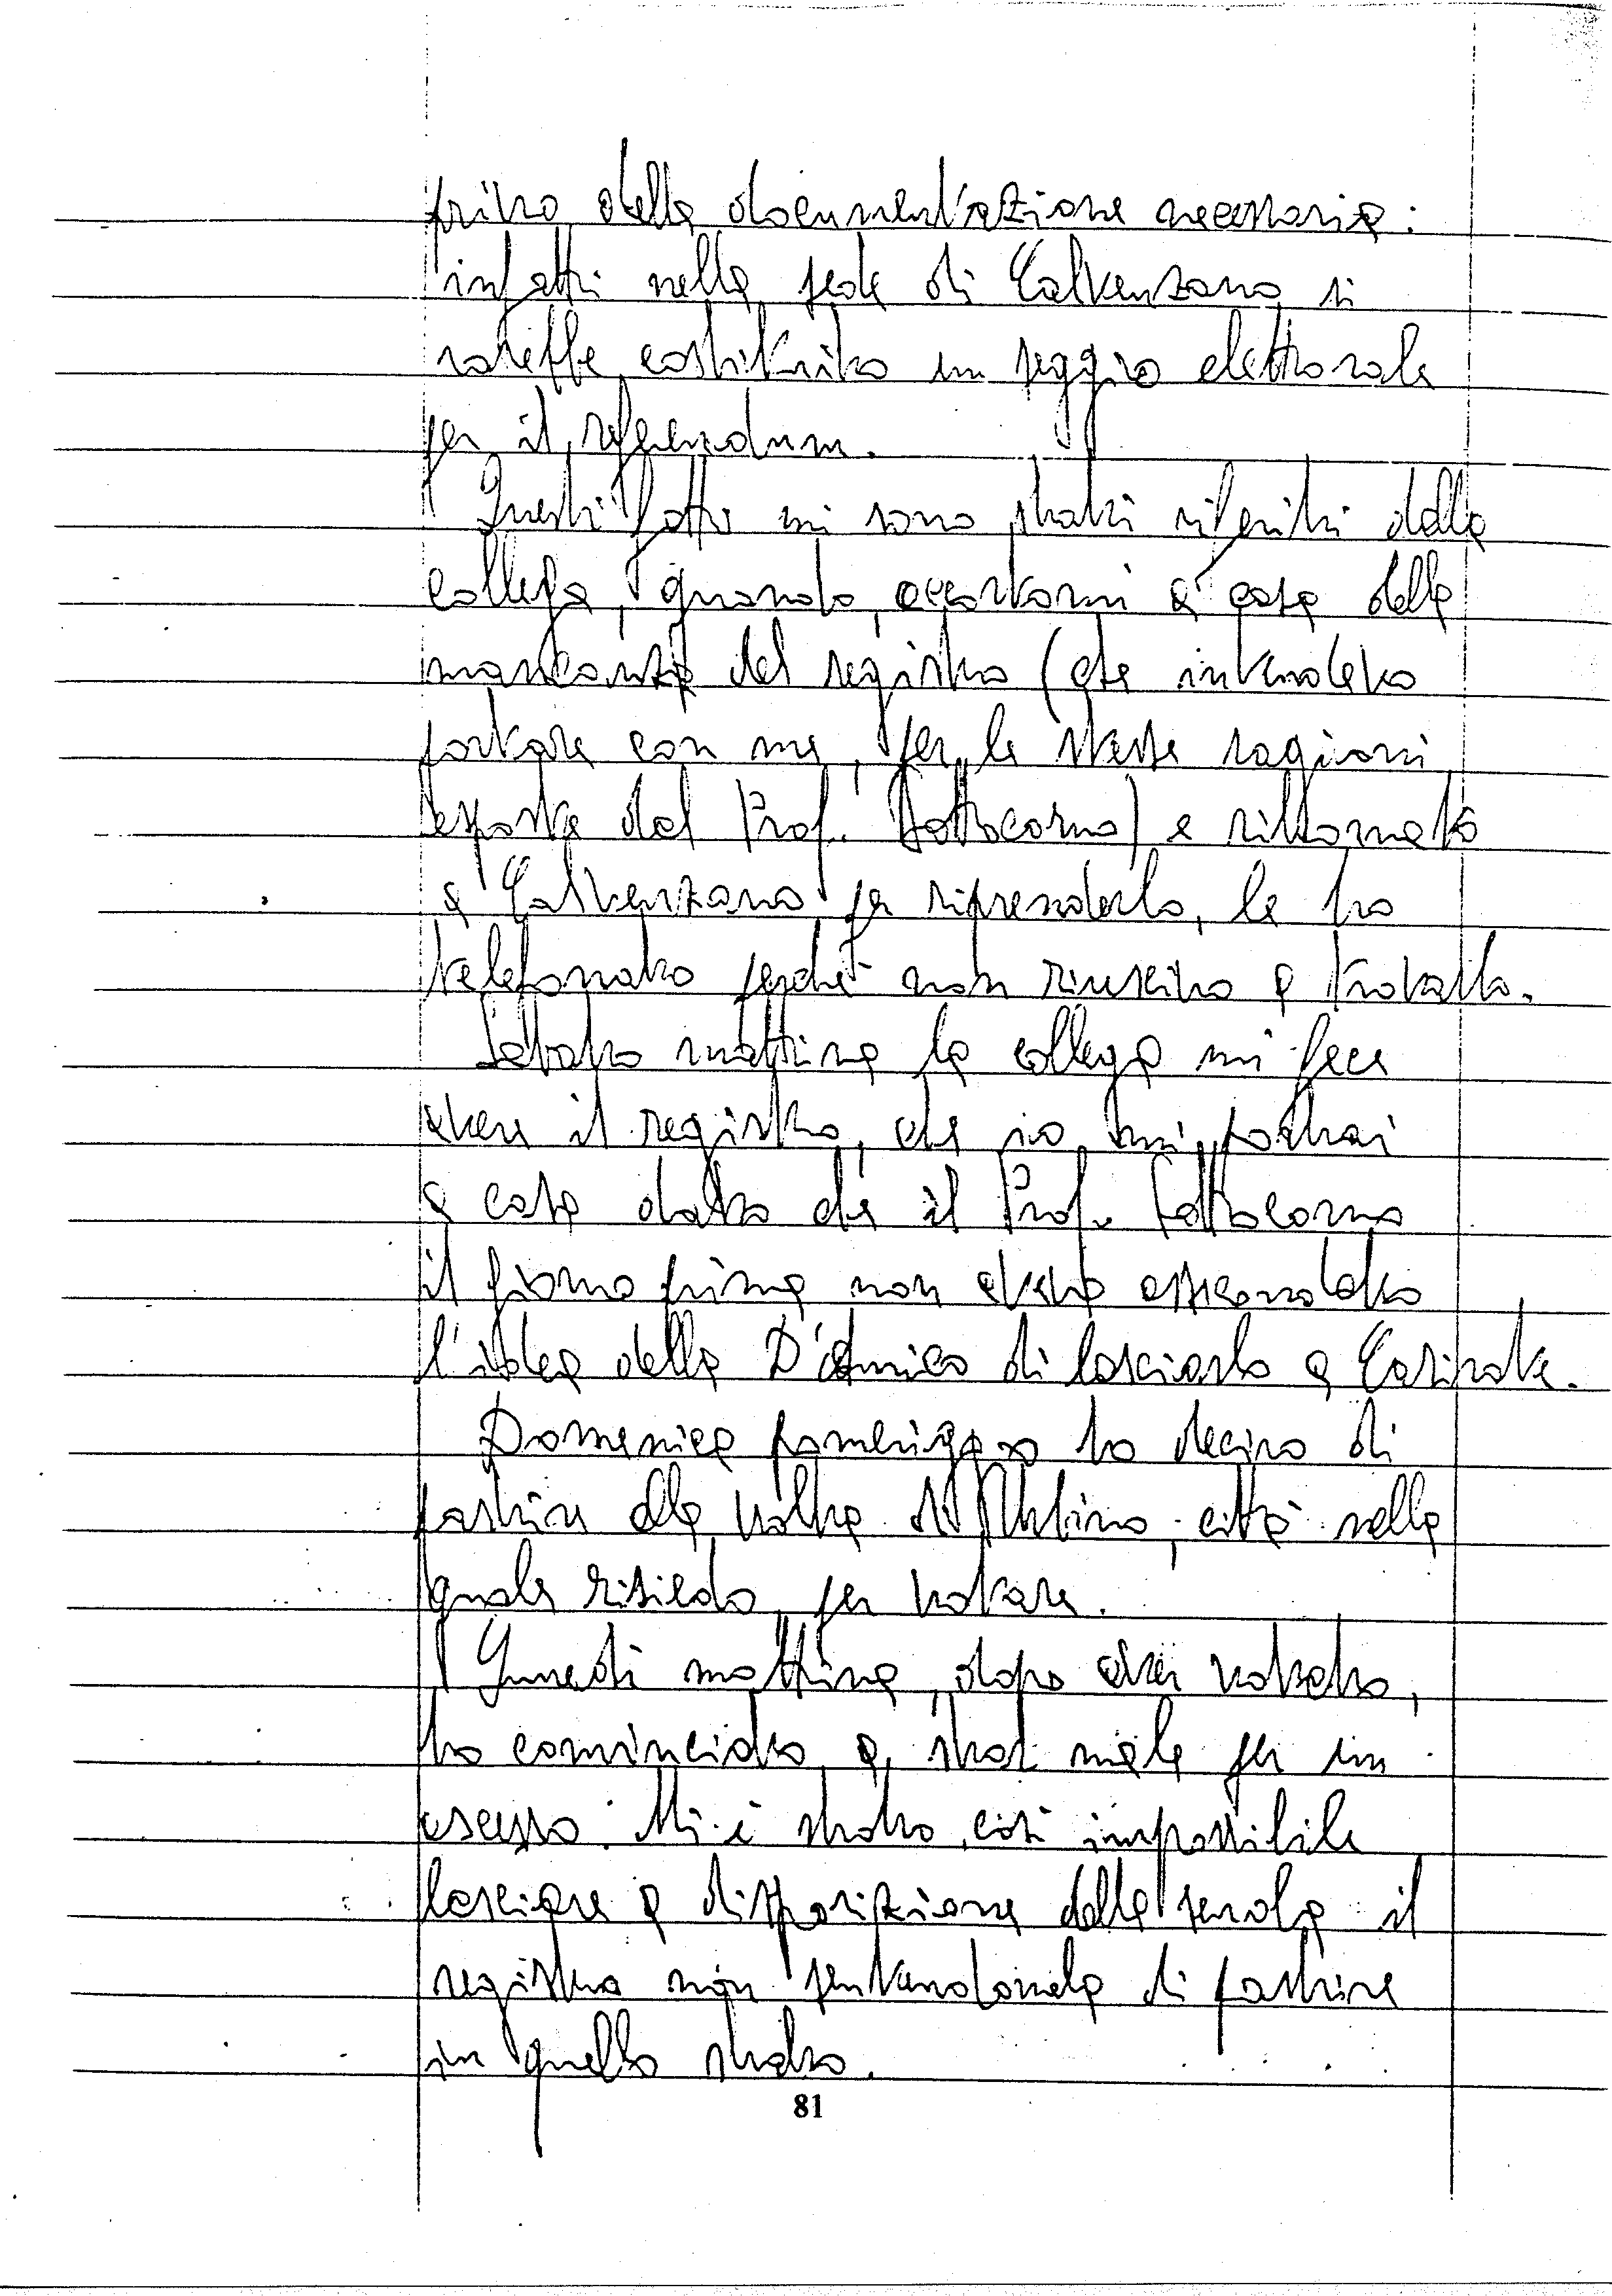 privo della documentazione necessaria:
infatti nella sede di Calvenzano si
sarebbe costituito un seggio elettorale
per il referendum.
Questi fatti mi sono stati riferiti dalla
collega, quando, accortomi a casa della
mancanza del registro (che intendevo
portare con me, per le stesse ragioni
esposte dal Prof. Fattocorno) e ritornato
a Calvenzano per riprenderlo, le ho
telefonato perché non riuscivo a trovarlo.
Sabato mattina la collega mi fece
avere il registro, che io mi portai
a casa dato che il Prof. Fattocorno
il giorno prima non aveva assecondato
l'idea della D'Amico di lasciarlo a Casirate.
Domenica pomeriggio ho deciso di
partire alla volta di Urbino, città nella
quale risiedo, per votare.
Lunedì mattina, dopo aver votato,
ho cominciato a star male per un
ascesso. Mi è stato così impossibile
lasciare a disposizione della scuola il
registro non sentendomela di partire
in quello stato.
81